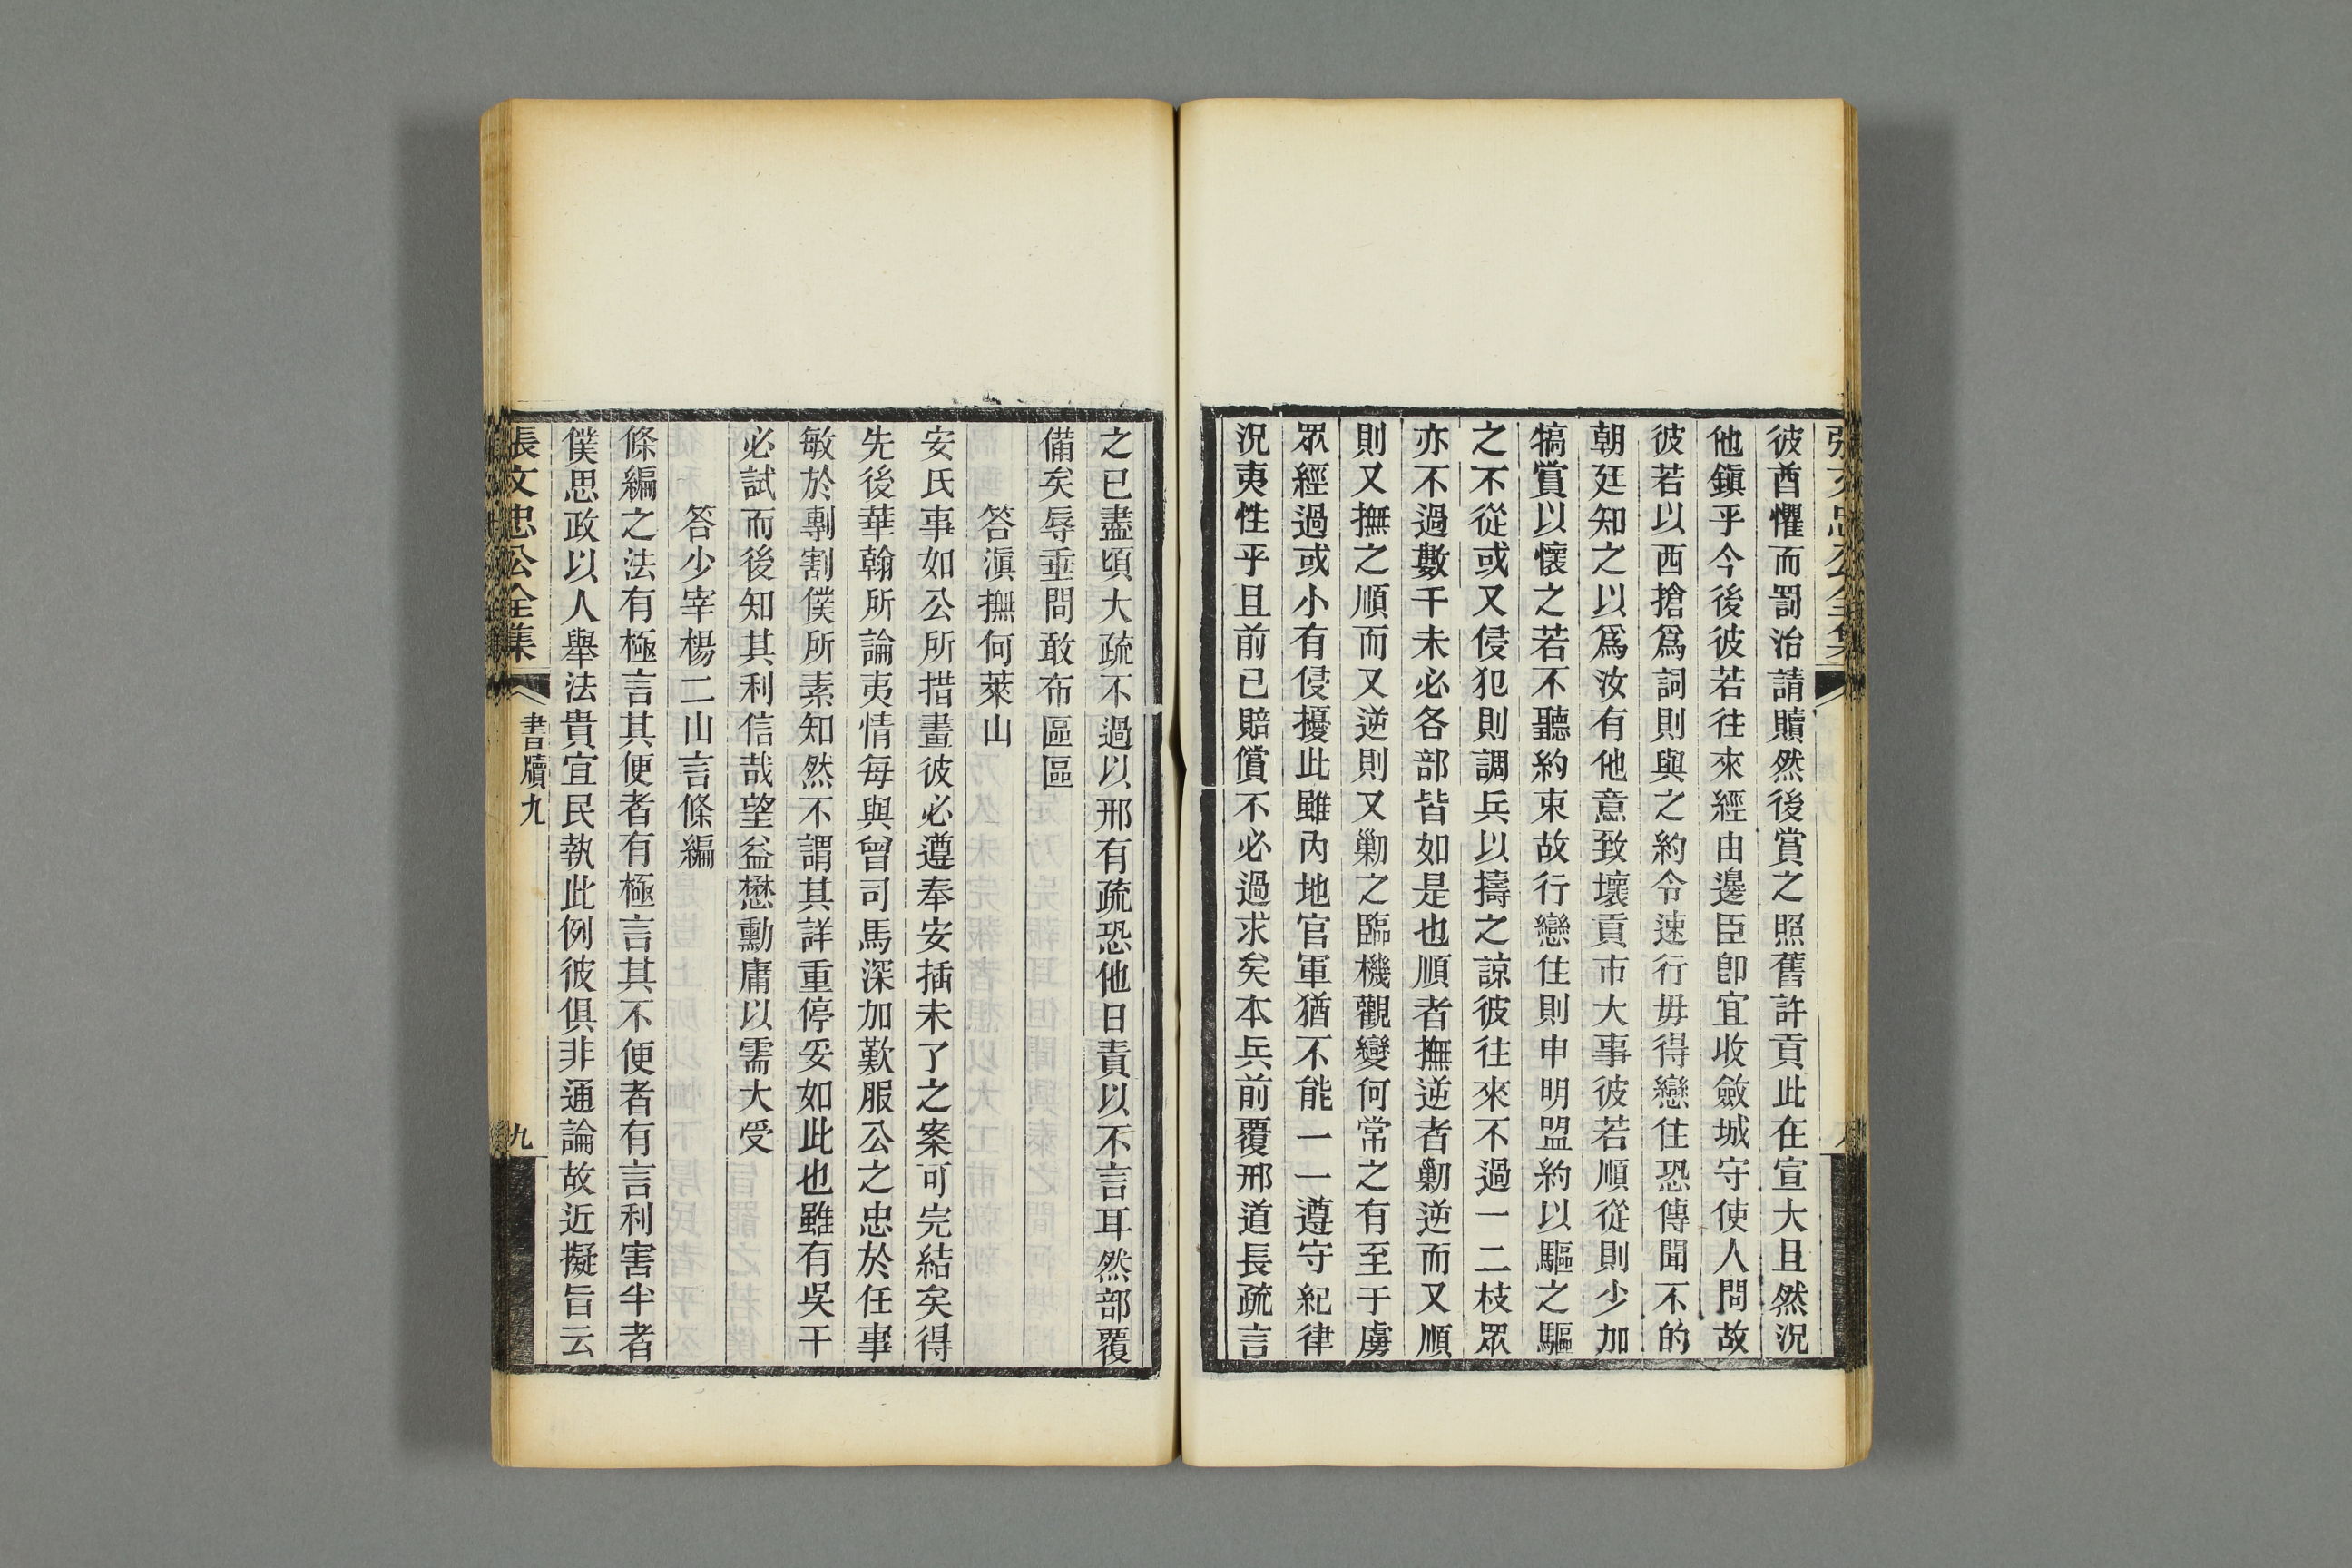 彼酋懼而罰治請贖然後賞之照舊許貢此在宣大且然況
他鎭乎今後彼若往來經由邊臣卽宜收斂城守使人問故
彼若以西搶爲詞則與之約令速行毋得戀住恐傳聞不的
朝廷知之以爲汝有他意致壞貢市大事彼若順從則少加
犒賞以懷之若不聽約束故行戀住則申明盟約以驅之驅
之不從或又侵犯則調兵以擣之諒彼往來不過一二枝眾
亦不過數千未必各部皆如是也順者撫逆者勦逆而又順
則又撫之順而又逆則又勦之臨機觀變何常之有至于虜
眾經過或小有侵擾此雖內地官軍猶不能一一遵守紀律
況夷性乎且前已賠償不必過求矣本兵前覆邢道長疏言
之已盡頃大疏不過以邢有疏恐他日責以不言耳然部覆
備矣辱垂問敢布區區
答滇撫何萊山
安氏事如公所措畫彼必遵奉安插未了之案可完結矣得
先後華翰所論夷情每與曾司馬深加歎服公之忠於任事
敏於剸割僕所素知然不謂其詳重停妥如此也雖有吳干
必試而後知其利信哉望益懋勳庸以需大受
答少宰楊二山言條編
條編之法有極言其便者有極言其不便者有言利害半者
僕思政以人舉法貴宜民執此例彼俱非通論故近擬旨云
張文忠公全集
書牘九
九